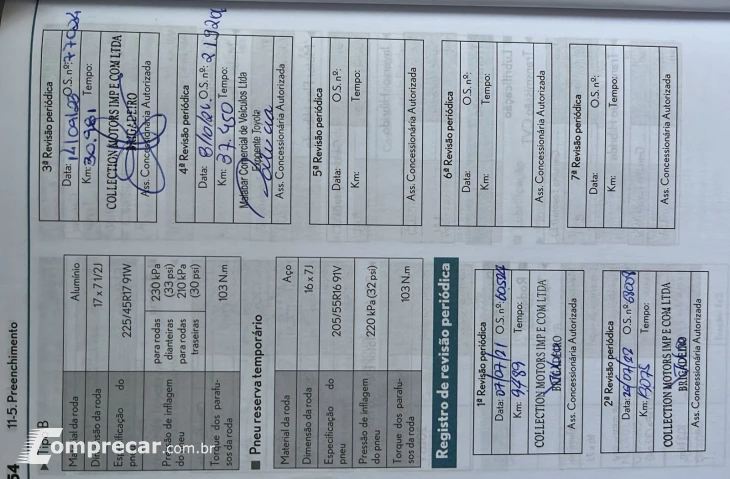 54 11-5. Preenchimento
Material da roda Alumínio
Dimensão da roda 17 x 7 1/2J
Especificação do pneu 225/45R17 91W
Pressão de inflagem do pneu
para rodas dianteiras 230 kPa (33 psi)
para rodas traseiras 210 kPa (30 psi)
Torque dos parafusos da roda 103 N.m
■ Pneu reserva temporário
Material da roda Aço
Dimensão da roda 16 x 7J
Especificação do pneu 205/55R16 91V
Pressão de inflagem do pneu 220 kPa (32 psi)
Torque dos parafusos da roda 103 N.m
Registro de revisão periódica
1ª Revisão periódica
Data: 07/07/21 O.S. nº:
Km: 9489 Tempo:
COLLECTION MOTORS IMP E COM LTDA
BRIGADEIRO
Ass. Concessionária Autorizada
2ª Revisão periódica
Data: O.S. nº:
Km: Tempo:
COLLECTION MOTORS IMP E COM LTDA
BRIGADEIRO
Ass. Concessionária Autorizada
3ª Revisão periódica
Data: O.S. nº:
Km: 30.981 Tempo:
COLLECTION MOTORS IMP E COM LTDA
BRIGADEIRO
Ass. Concessionária Autorizada
4ª Revisão periódica
Data: O.S. nº:
Km: 37.450 Tempo:
Malabar Comercial de Veículos Ltda
Toyota
Ass. Concessionária Autorizada
5ª Revisão periódica
Data: O.S. nº:
Km: Tempo:
Ass. Concessionária Autorizada
6ª Revisão periódica
Data: O.S. nº:
Km: Tempo:
Ass. Concessionária Autorizada
7ª Revisão periódica
Data: O.S. nº:
Km: Tempo:
Ass. Concessionária Autorizada
Comprecar.com.br